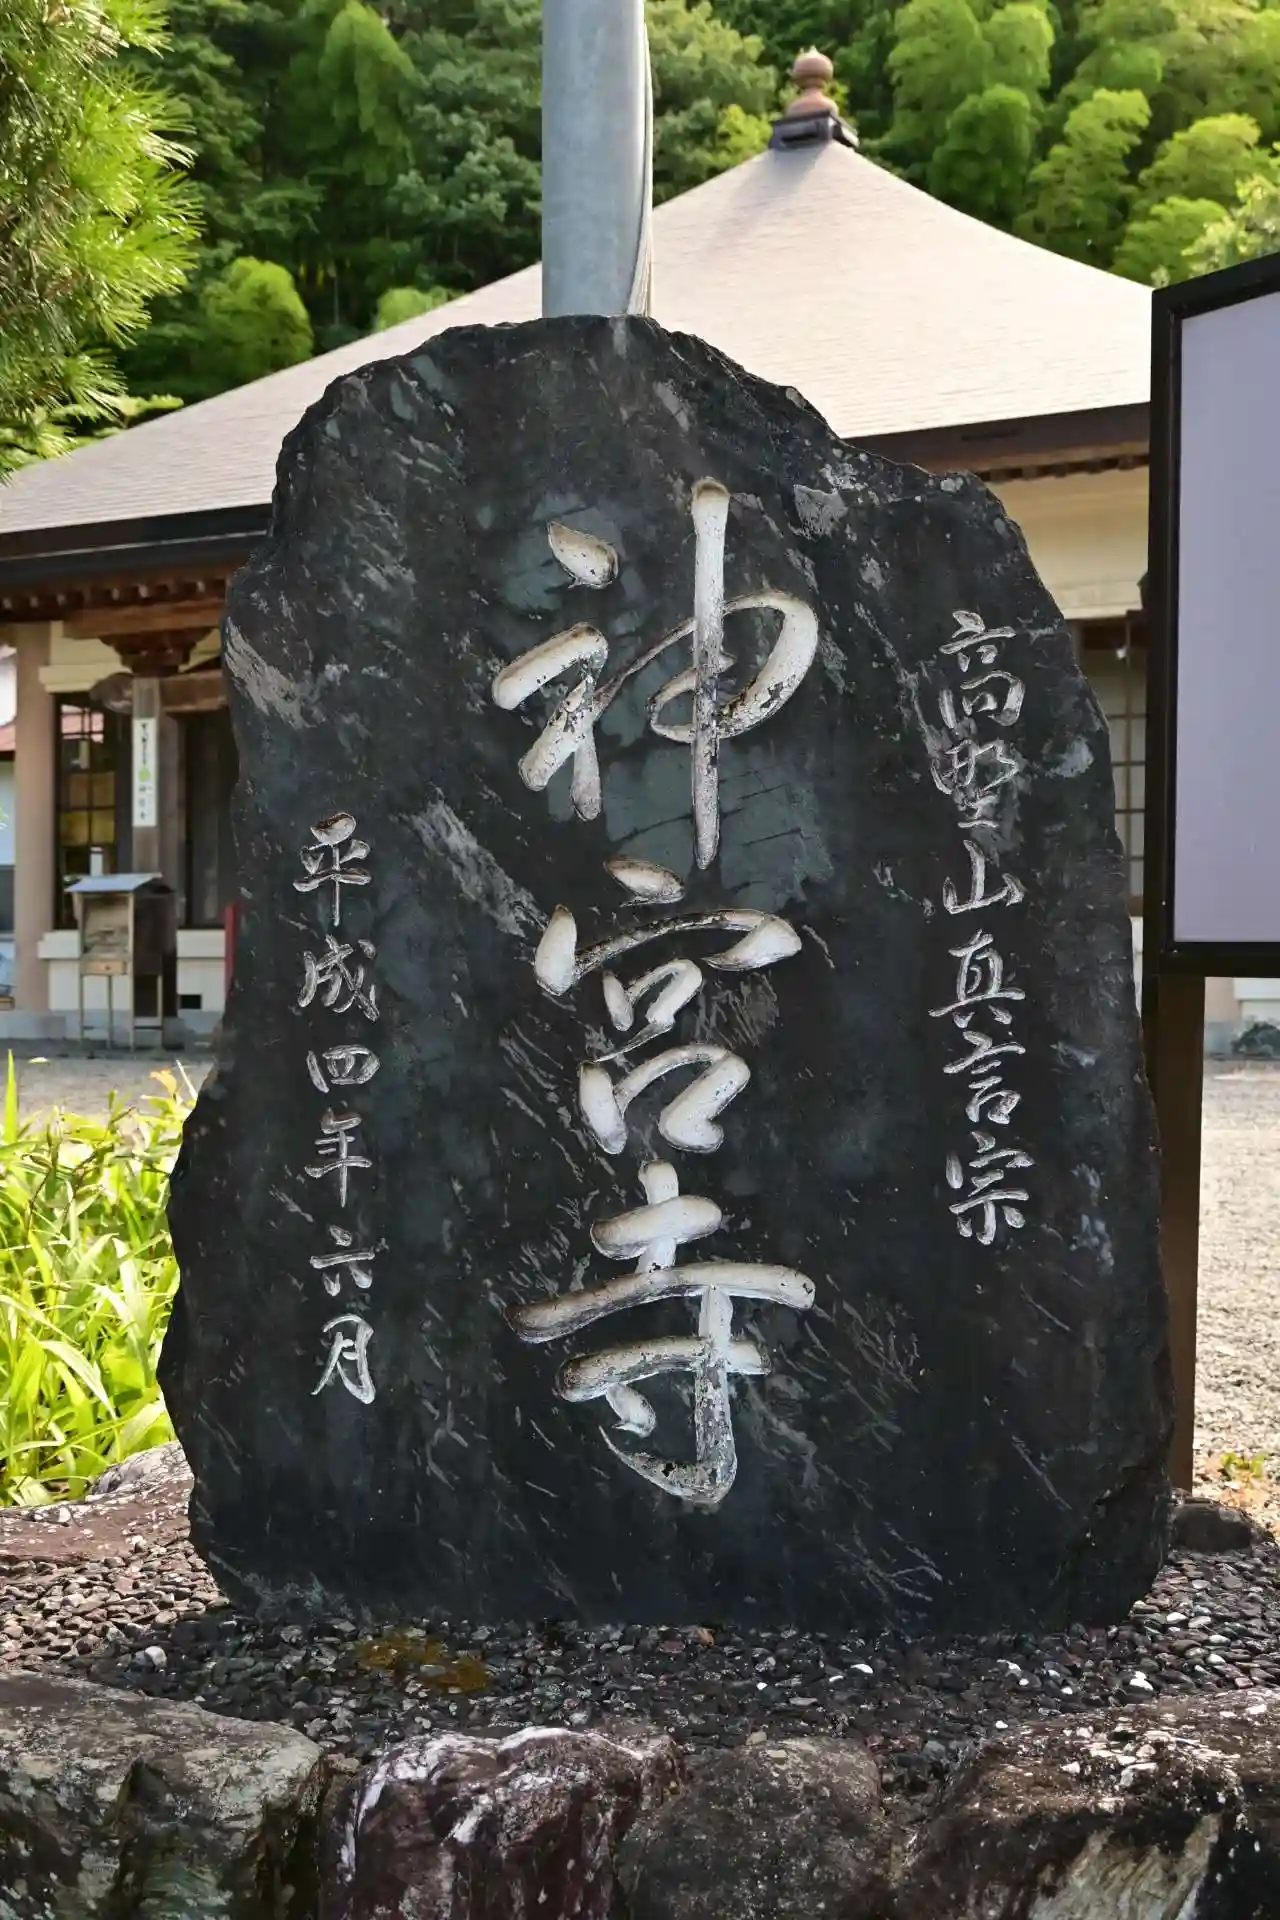 高野山真言宗
神宮寺
平成四年六月